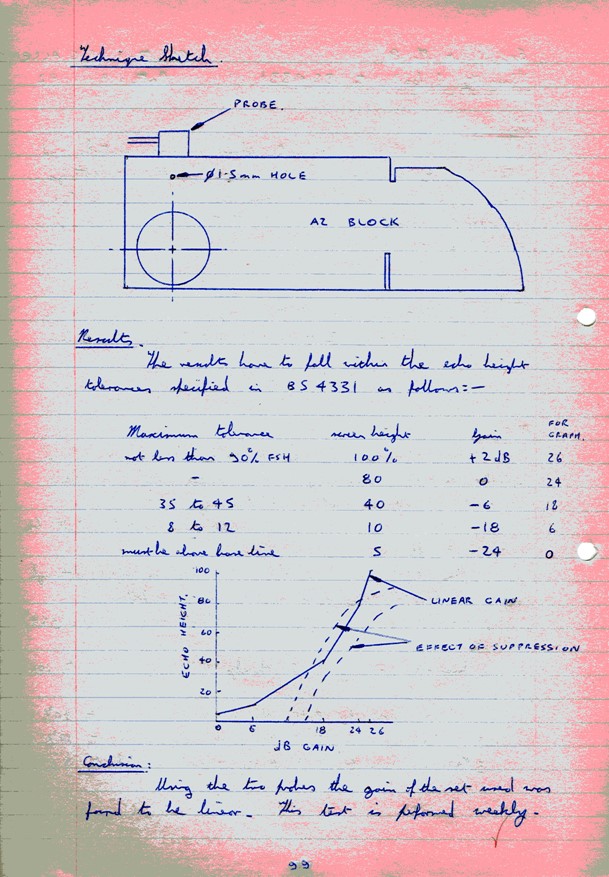 Technique Sketch.
PROBE.
Ø1·5mm HOLE
A2 BLOCK
Results.
The results have to fall within the echo height
tolerances specified in BS 4331 as follows:-
Maximum tolerance screen height Gain FOR GRAPH.
not less than 90% FSH 100% +2dB 26
- 80 0 24
35 to 45 40 -6 18
8 to 12 10 -18 6
must be above base line 5 -24 0
100
80
60
40
20
ECHO HEIGHT.
LINEAR GAIN
EFFECT OF SUPPRESSION
0 6 18 24 26
dB GAIN
Conclusion:
Using the two probes the gain of the set used was
found to be linear. This test is peformed weekly.
99